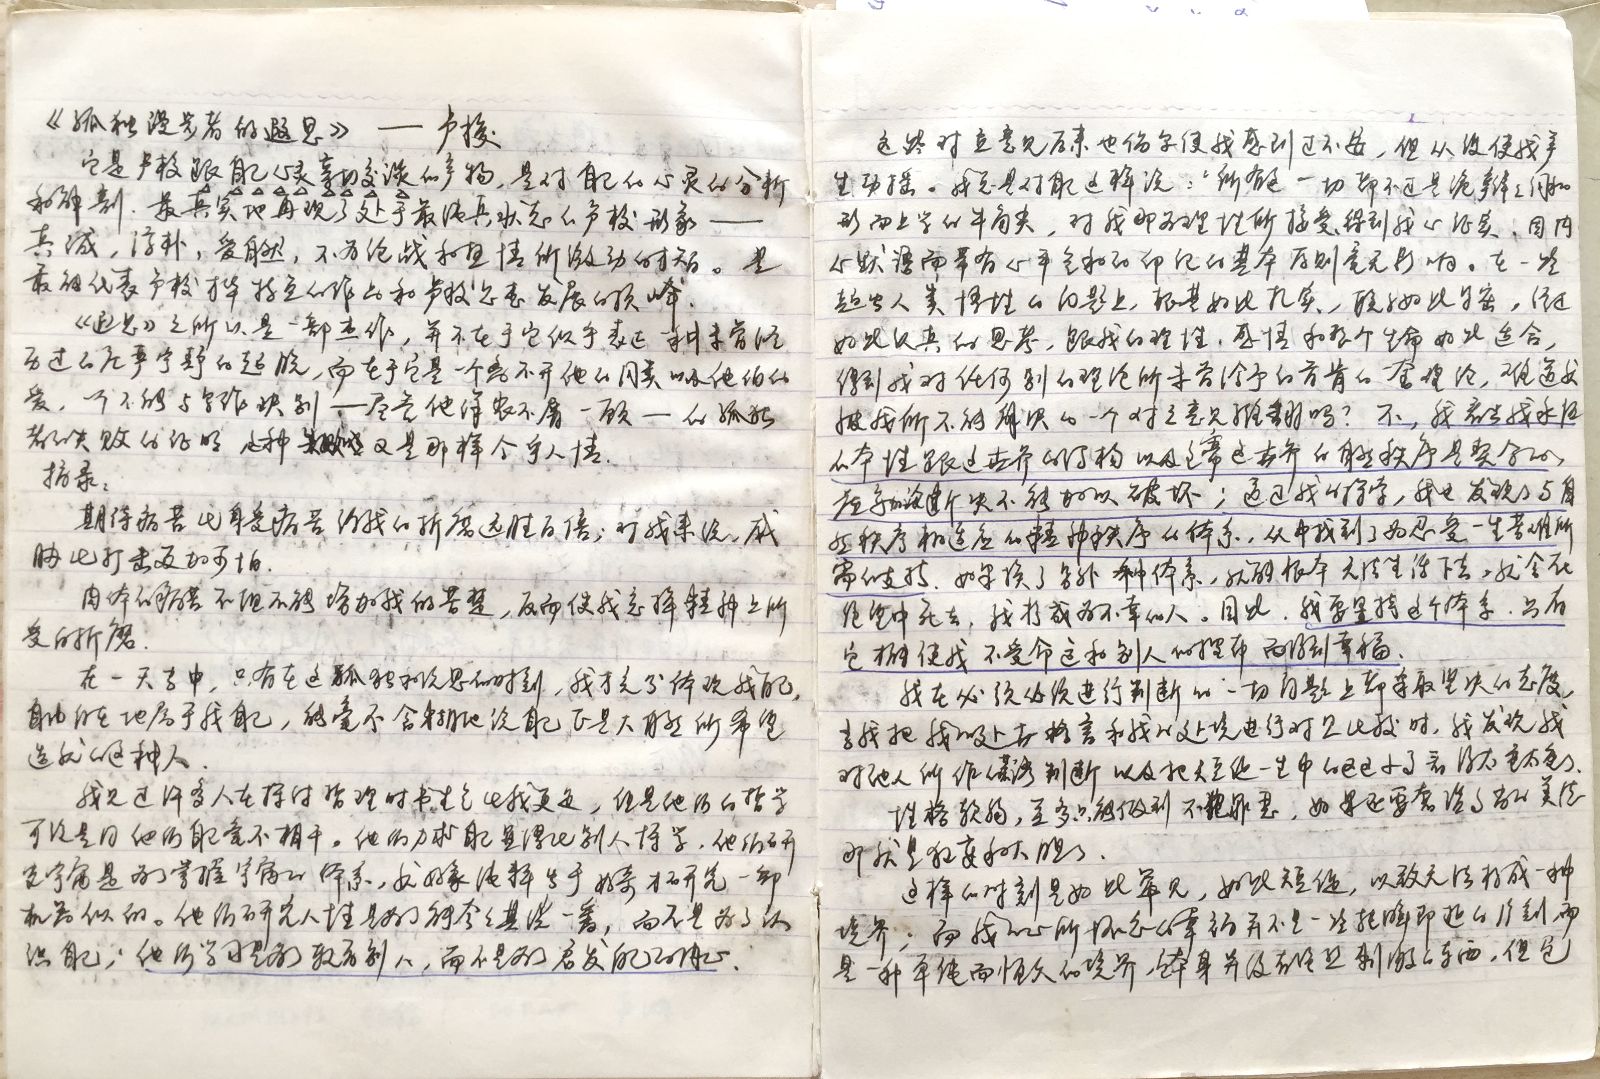 《孤独漫步者的遐思》 — 卢梭
它是卢梭跟自己心灵亲切交谈的产物，是对自己的心灵的分析
和解剖．最真实地再现了处于最港真状态的卢梭形象——
真诚，淳朴，爱自然，不为论战和热情所激动的才智。是
最能代表卢梭才华特点的作品和卢梭思想发展的顶峰．
《遐思》之所以是一部杰作，并不在于它似乎表达一种未曾经
历过的庄严宁静的超脱，而在于它是一个离不开他的同类以及他们的
爱，一个不能与写作诀别——尽管他佯装不屑一顾——的孤独
者的失败的证明 这种失败又是那样令宇人情．
摘录：
期待痛苦比身受痛苦给我的折磨远胜百倍；对我来说，威
胁比打击更加可怕．
肉体的痛苦不但不能增加我的苦楚，反而使我忘掉精神上所
受的折磨．
在一天当中，只有在这孤独和沉思的时刻，我才充分体现我自己，
自由自在地属于我自己，能毫不含糊地说自己正是大自然所希望
造就的这种人．
我见过许多人在探讨哲理时书生气比我更足，但是他们的哲学
可说是同他们自己毫不相干。他们力求自己显得比别人博学，他们研
究宇宙是为了掌握宇宙的体系，就好象纯粹出于好奇才研究一部
机器似的。他们研究人性是为了能夸夸其谈一番，而不是为了认
识自己；他们学习是为了教育别人，而不是为了启发自己的内心．
这些对立意见后来也偶尔使我感到过不安，但从没使我产
生动摇。我总是对自己这样说：“所有这一切都不过是诡辩之词和
形而上学的牛角尖，对我那为理性所接受，得到我心证实，因内
心默语而带有心平气和的印记的基本原则毫无影响。在一些
超出人类悟性的问题上，根基如此扎实，联系如此牢密，经过
如此认真的思考，跟我的理性．感情和整个生命如此适合，
得到我对任何别的理论所未曾给予的首肯的全理论，难道会
被我所不能解决的一个对立意见推翻吗？不，我看出我永恒
的本性跟这世界的结构以及主宰这世界的自然秩序是契合的，
在空论断决不能加以破坏；通过我的探索，我也发现了与自
然秩序相适应的精神秩序的体系，从中找到了为忍受一生苦难所
需的支持．如果换了另外一种体系，我就根本无法生活下去，就会在
绝望中死去，我将成为不幸的人。因此．我要坚持这个体系．只有
它才能使我不受命运和别人的摆布而得到幸福．
我在必须必须进行判断的一切问题上都采取坚决的态度，
当我把我的处世格言和我的处境进行对照比较时，我发现我
对他人所作荒谬判断以及把短促一生中的区区小事看得太重太重了．
性格软弱，至多只能做到不犯罪恶，如果还要奢谈高尚的美德
那就是狂妄和大胆了．
这样的时刻是如此罕见，如此短促，以致无法构成一种
境界；而我的心所怀念的幸福并不是一些转瞬即逝的片刻而
是一种单纯而恒久的境界，它本身并没有什么强烈刺激的东西，但它